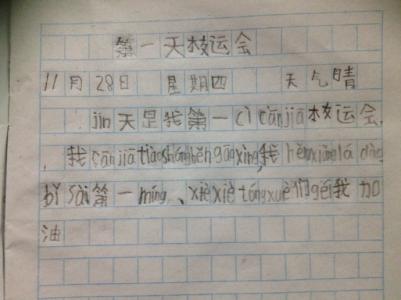 第一天校运会
11月28日 星期四 天气晴
jīn天是我第一cì cān jiā校运会,
我cān jiā tiào shéng hěn gāo xìng,我hěn xiǎng ná
bǐ sài第一míng、xiè xiè tóng xué们gěi我加
油